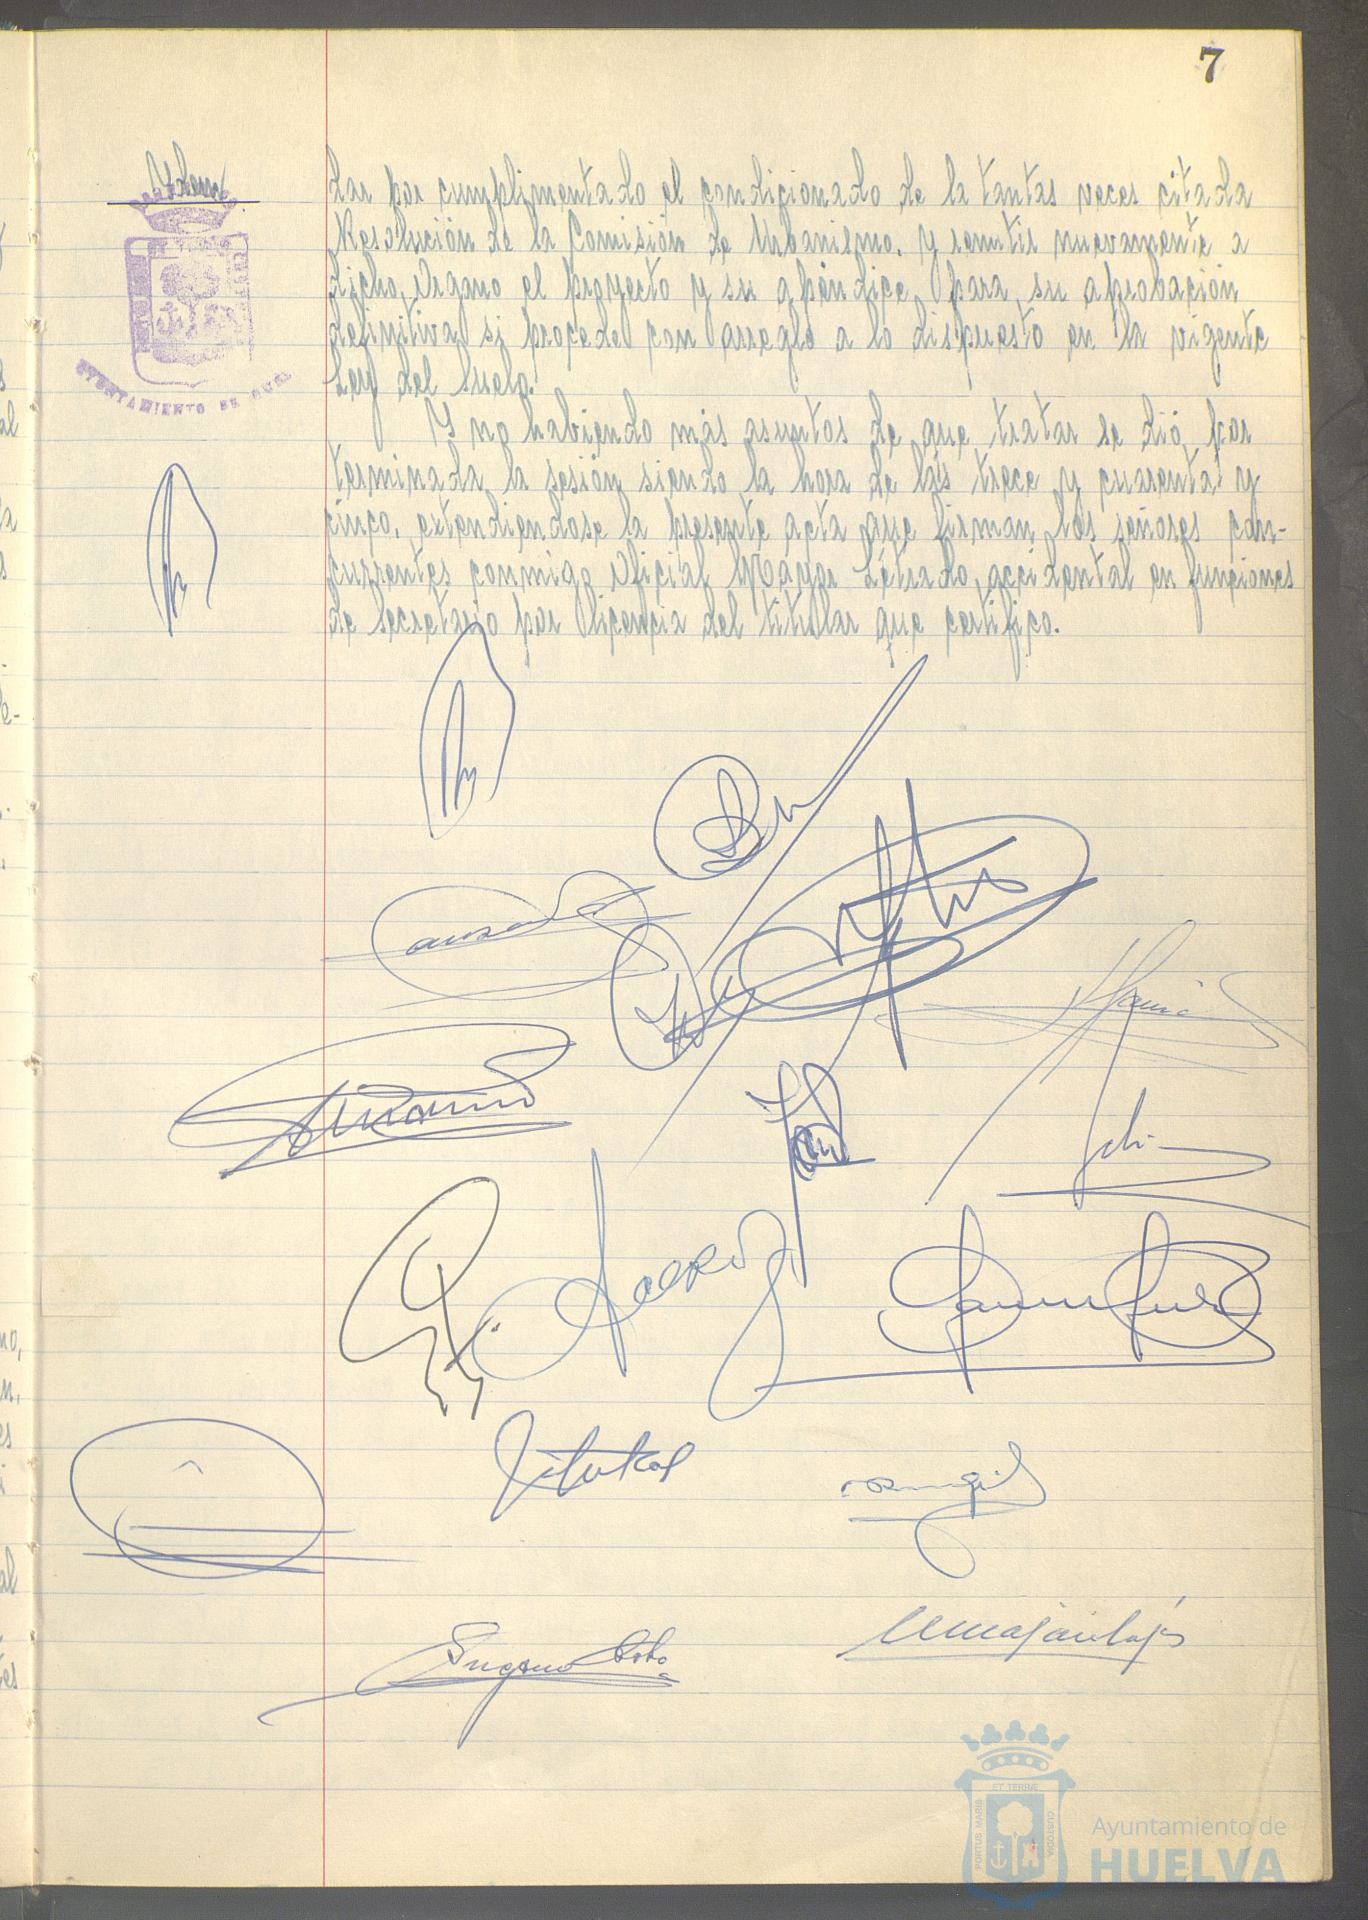 7
Idem
dar por cumplimentado el condicionado de la tantas veces citada
Resolución de la Comisión de Urbanismo, y remitir nuevamente a
dicho Organo el proyecto y su apéndice para su aprobación
definitiva si procede con arreglo a lo dispuesto en la vigente
Ley del Suelo.
Y no habiendo más asuntos de que tratar se dió por
terminada la sesión siendo la hora de las trece y cuarenta y
cinco, extendiendose la presente acta que firman los señores con-
currentes conmigo Oficial Mayor Letrado, accidental en funciones
de Secretario por licencia del titular que certifico.
AYUNTAMIENTO DE
PORTUS MARIS
ET TERRÆ
CUSTODIA
Ayuntamiento de
HUELVA